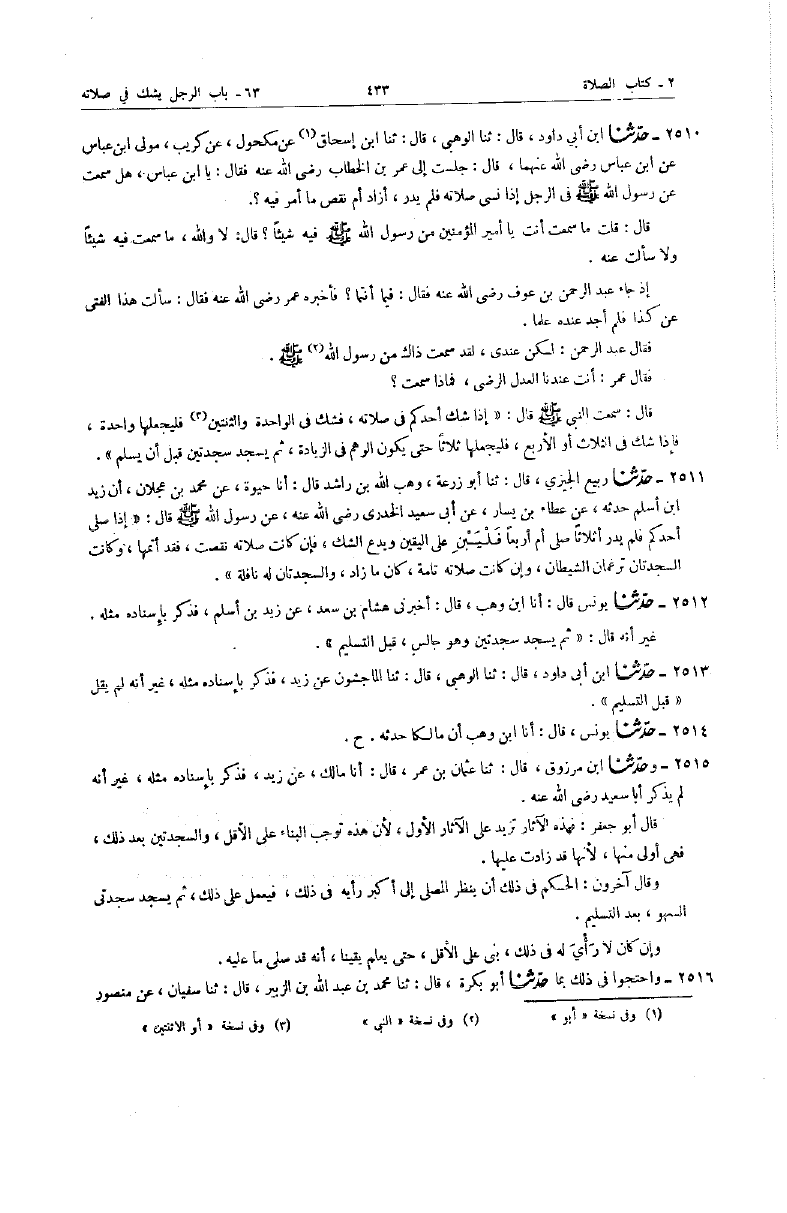 ٢ ـ كتاب الصلاة
٤٣٣
٦٣- باب الرجل يشك في صلاته
٢٥١٠ ـ حدثنا ابن أبى داود ، قال : ثنا الوهبى ، قال : ثنا ابن إسحاق(١) عن مكحول ، عن كريب ، مولى ابن عباس
عن ابن عباس رضى الله عنهما ، قال : جلست إلى عمر بن الخطاب رضى الله عنه فقال : يا ابن عباس ، هل سمعت
عن رسول الله ﷺ فى الرجل إذا نسى صلاته فلم يدر ، أزاد أم نقص ما أمر فيه ؟.
قال : قلت ما سمعت أنت يا أمير المؤمنين من رسول الله ﷺ فيه شيئاً ؟ قال: لا والله ، ما سمعت فيه شيئاً
ولا سألت عنه .
إذ جاء عبد الرحمن بن عوف رضى الله عنه فقال : فيما أنتما ؟ فأخبره عمر رضى الله عنه فقال : سألت هذا الفتى
عن كذا فلم أجد عنده علما .
فقال عبد الرحمن : لكن عندى ، لقد سمعت ذاك من رسول الله(٢) ﷺ .
فقال عمر : أنت عندنا العدل الرضى ، فماذا سمعت ؟
قال : سمعت النبي ﷺ قال : « إذا شك أحدكم فى صلاته ، فشك فى الواحدة والثنتين(٣) فليجعلها واحدة ،
فإذا شك فى الثلاث أو الأربع ، فليجعلها ثلاثاً حتى يكون الوهم فى الزيادة ، ثم يسجد سجدتين قبل أن يسلم » .
٢٥١١ ـ حدثنا ربيع الجيزي ، قال : ثنا أبو زرعة ، وهب الله بن راشد قال : أنا حيوة ، عن محمد بن عجلان ، أن زيد
ابن أسلم حدثه ، عن عطاء بن يسار ، عن أبى سعيد الخدرى رضى الله عنه ، عن رسول الله ﷺ قال : « إذا صلى
أحدكم فلم يدر أثلاثاً صلى أم أربعاً فَلْيَبْنِ على اليقين ويدع الشك ، فإن كانت صلاته نقصت ، فقد أتمها ، وكانت
السجدتان ترغمان الشيطان ، وإن كانت صلاته تامة ، كان ما زاد ، والسجدتان له نافلة » .
٢٥١٢ ـ حدثنا يونس قال : أنا ابن وهب ، قال : أخبرنى هشام بن سعد ، عن زيد بن أسلم ، فذكر بإسناده مثله .
غير أنه قال : « ثم يسجد سجدتين وهو جالس ، قبل التسليم » .
٢٥١٣ ـ حدثنا ابن أبى داود ، قال : ثنا الوهبى ، قال : ثنا الماجشون عن زيد ، فذكر بإسناده مثله ، غير أنه لم يقل
« قبل التسليم » .
٢٥١٤ ـ حدثنا يونس ، قال : أنا ابن وهب أن مالكا حدثه . ح .
٢٥١٥ ـ وحدثنا ابن مرزوق ، قال : ثنا عثمان بن عمر ، قال : أنا مالك ، عن زيد ، فذكر بإسناده مثله ، غير أنه
لم يذكر أبا سعيد رضى الله عنه .
قال أبو جعفر : فهذه الآثار تزيد على الآثار الأول ، لأن هذه توجب البناء على الأقل ، والسجدتين بعد ذلك ،
فهى أولى منها ، لأنها قد زادت عليها .
وقال آخرون : الحكم فى ذلك أن ينظر المصلى إلى أكبر رأيه فى ذلك ، فيعمل على ذلك ، ثم يسجد سجدتى
السهو ، بعد التسليم .
وإن كان لا رَأْيَ له فى ذلك ، بنى على الأقل ، حتى يعلم يقينا ، أنه قد صلى ما عليه .
٢٥١٦ ـ واحتجوا فى ذلك بما حدثنا أبو بكرة ، قال : ثنا محمد بن عبد الله بن الزبير ، قال : ثنا سفيان ، عن منصور
(١) وفى نسخة « أبو » (٢) وفى نسخة « النبى » (٣) وفى نسخة « أو الاثنتين »